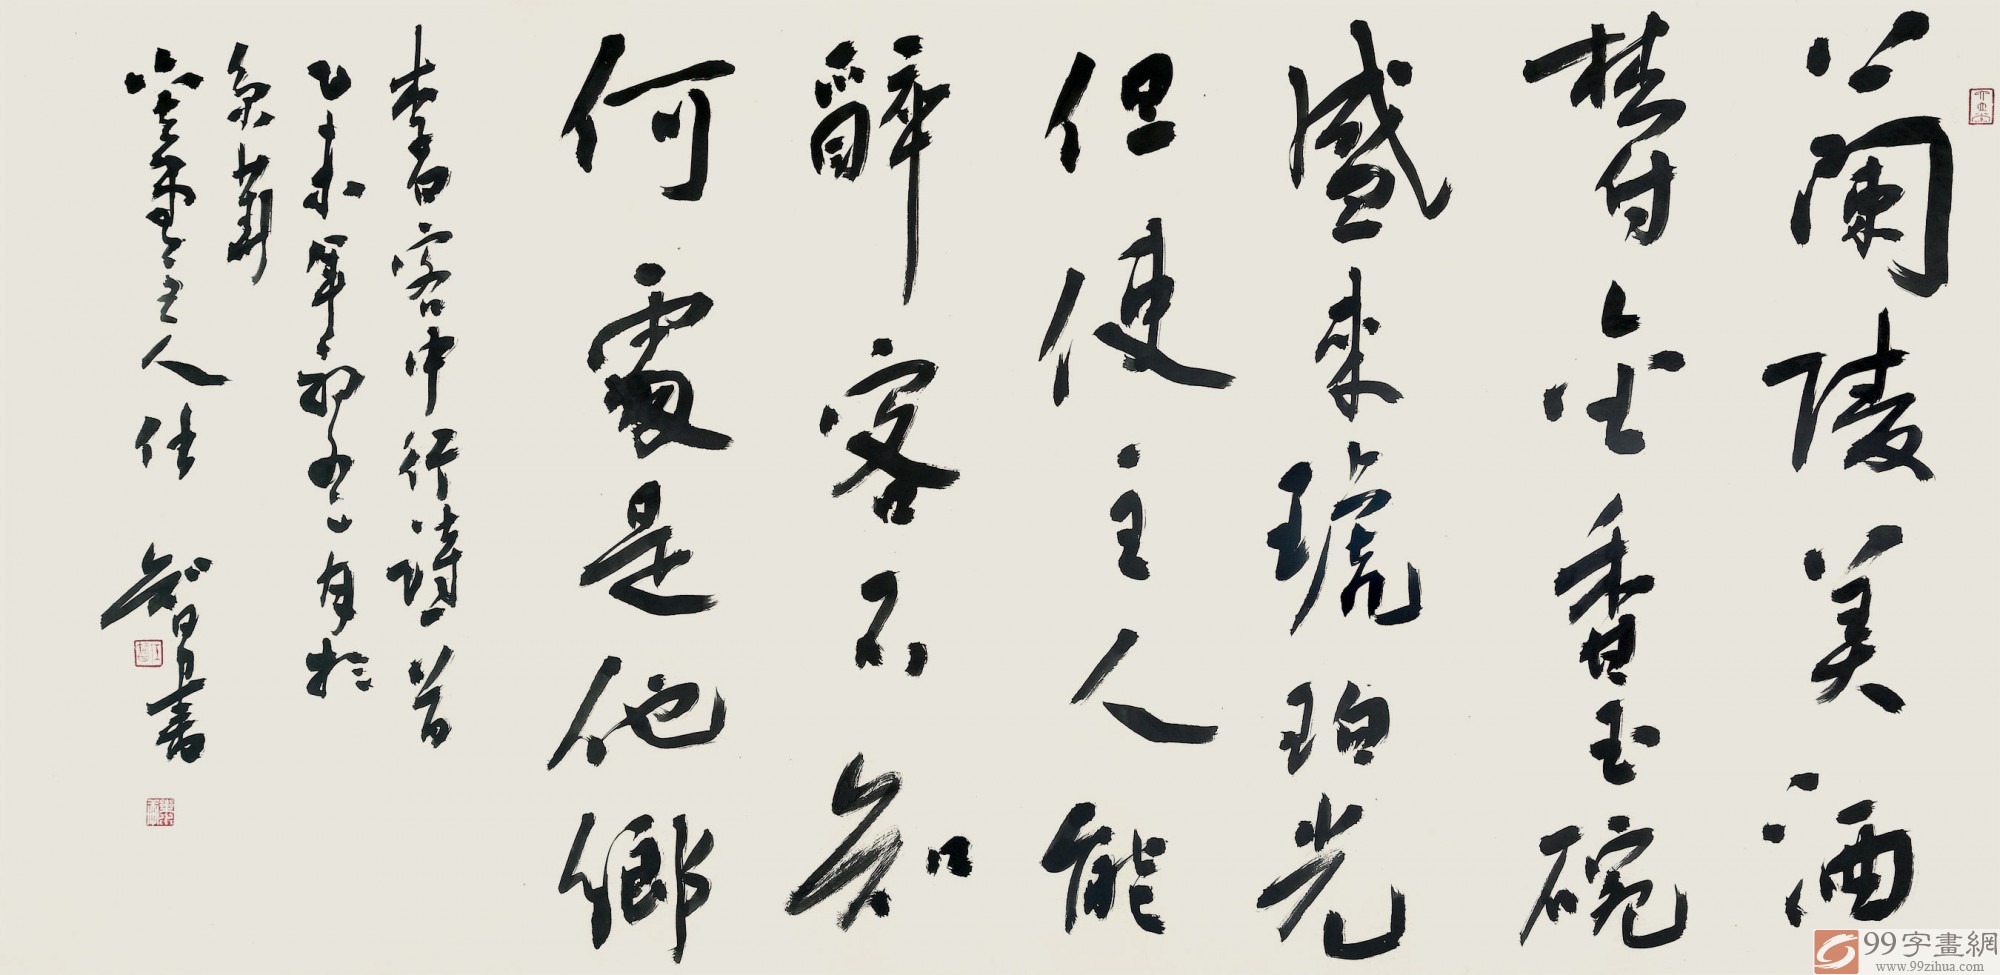 蘭陵美酒
鬱金香玉碗
盛来琥珀光
但使主人能
醉客不知
何處是他鄉
李白客中行詩一首
乙未年初冬月於
京華
主人仕智書
99字畫網
www.99zihua.com